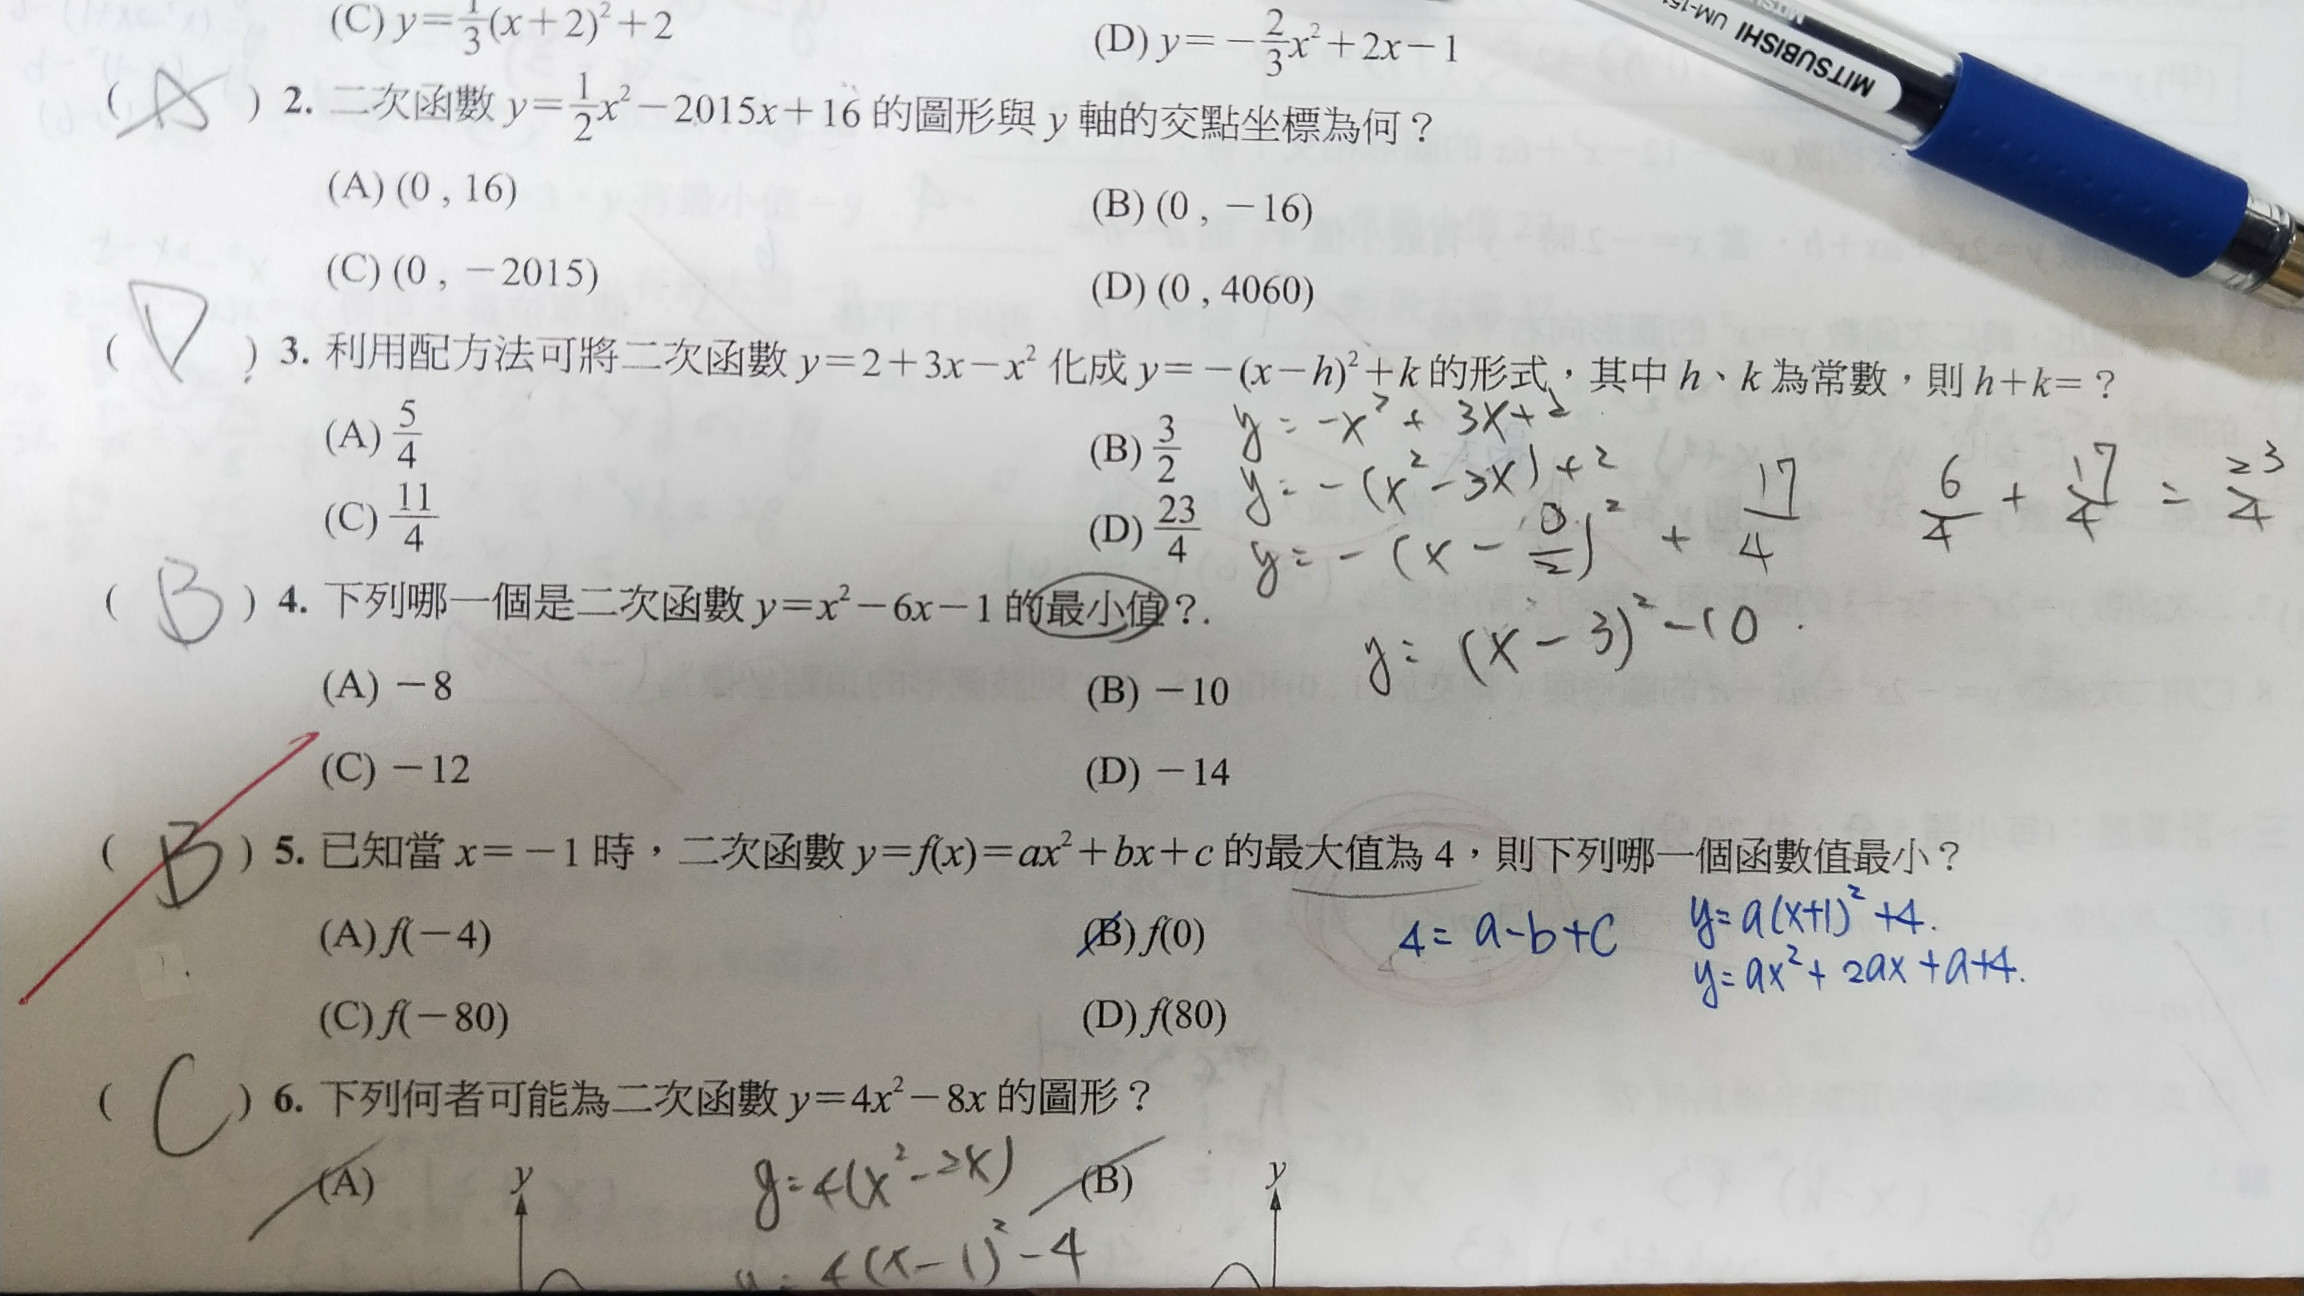 (C) y=1/3(x+2)²+2
(D) y=-2/3x²+2x-1
MITSUBISHI UM-151
( A ) 2. 二次函數 y=1/2x²-2015x+16 的圖形與 y 軸的交點坐標為何？
(A) (0 , 16)
(B) (0 , -16)
(C) (0 , -2015)
(D) (0 , 4060)
( D ) 3. 利用配方法可將二次函數 y=2+3x-x² 化成 y=-(x-h)²+k 的形式，其中 h、k 為常數，則 h+k=？
(A) 5/4
(B) 3/2
(C) 11/4
(D) 23/4
y=-x²+3x+2
y=-(x²-3x)+2
+ 17/4
6/4 + 17/4 = 23/4
( B ) 4. 下列哪一個是二次函數 y=x²-6x-1 的最小值？
y=(x-3)²-10
(A) -8
(B) -10
(C) -12
(D) -14
( B ) 5. 已知當 x=-1 時，二次函數 y=f(x)=ax²+bx+c 的最大值為 4，則下列哪一個函數值最小？
(A) f(-4)
(B) f(0)
4=a-b+c
y=a(x+1)²+4.
y=ax²+2ax+a+4.
(C) f(-80)
(D) f(80)
( C ) 6. 下列何者可能為二次函數 y=4x²-8x 的圖形？
(A)
y
y=4(x²-2x)
(B)
y
y=4(x-1)²-4